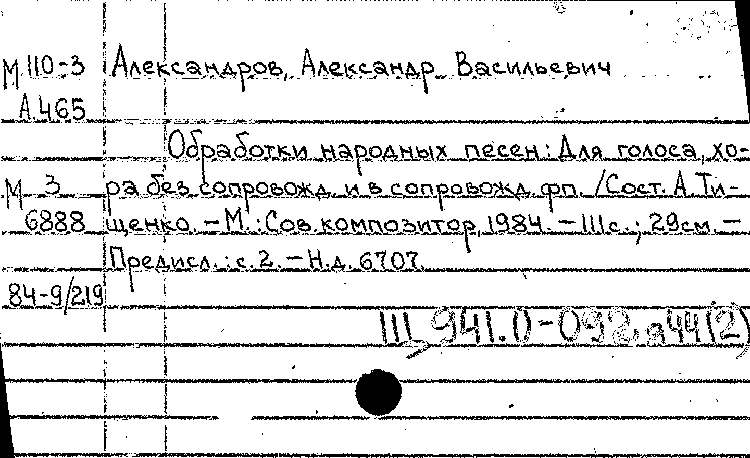 М 110-3 Александров, Александр Васильевич
А 465
Обработки народных песен: Для голоса, хо-
М 3 ра без сопровожд. и в сопровожд. фп. /Сост. А. Ти-
6888 щенко. – М.: Сов. композитор, 1984. – 111с.; 29см. –
Предисл.: с. 2. – Н.д. 6707.
84-9/219
Щ941.0-092я44(2)